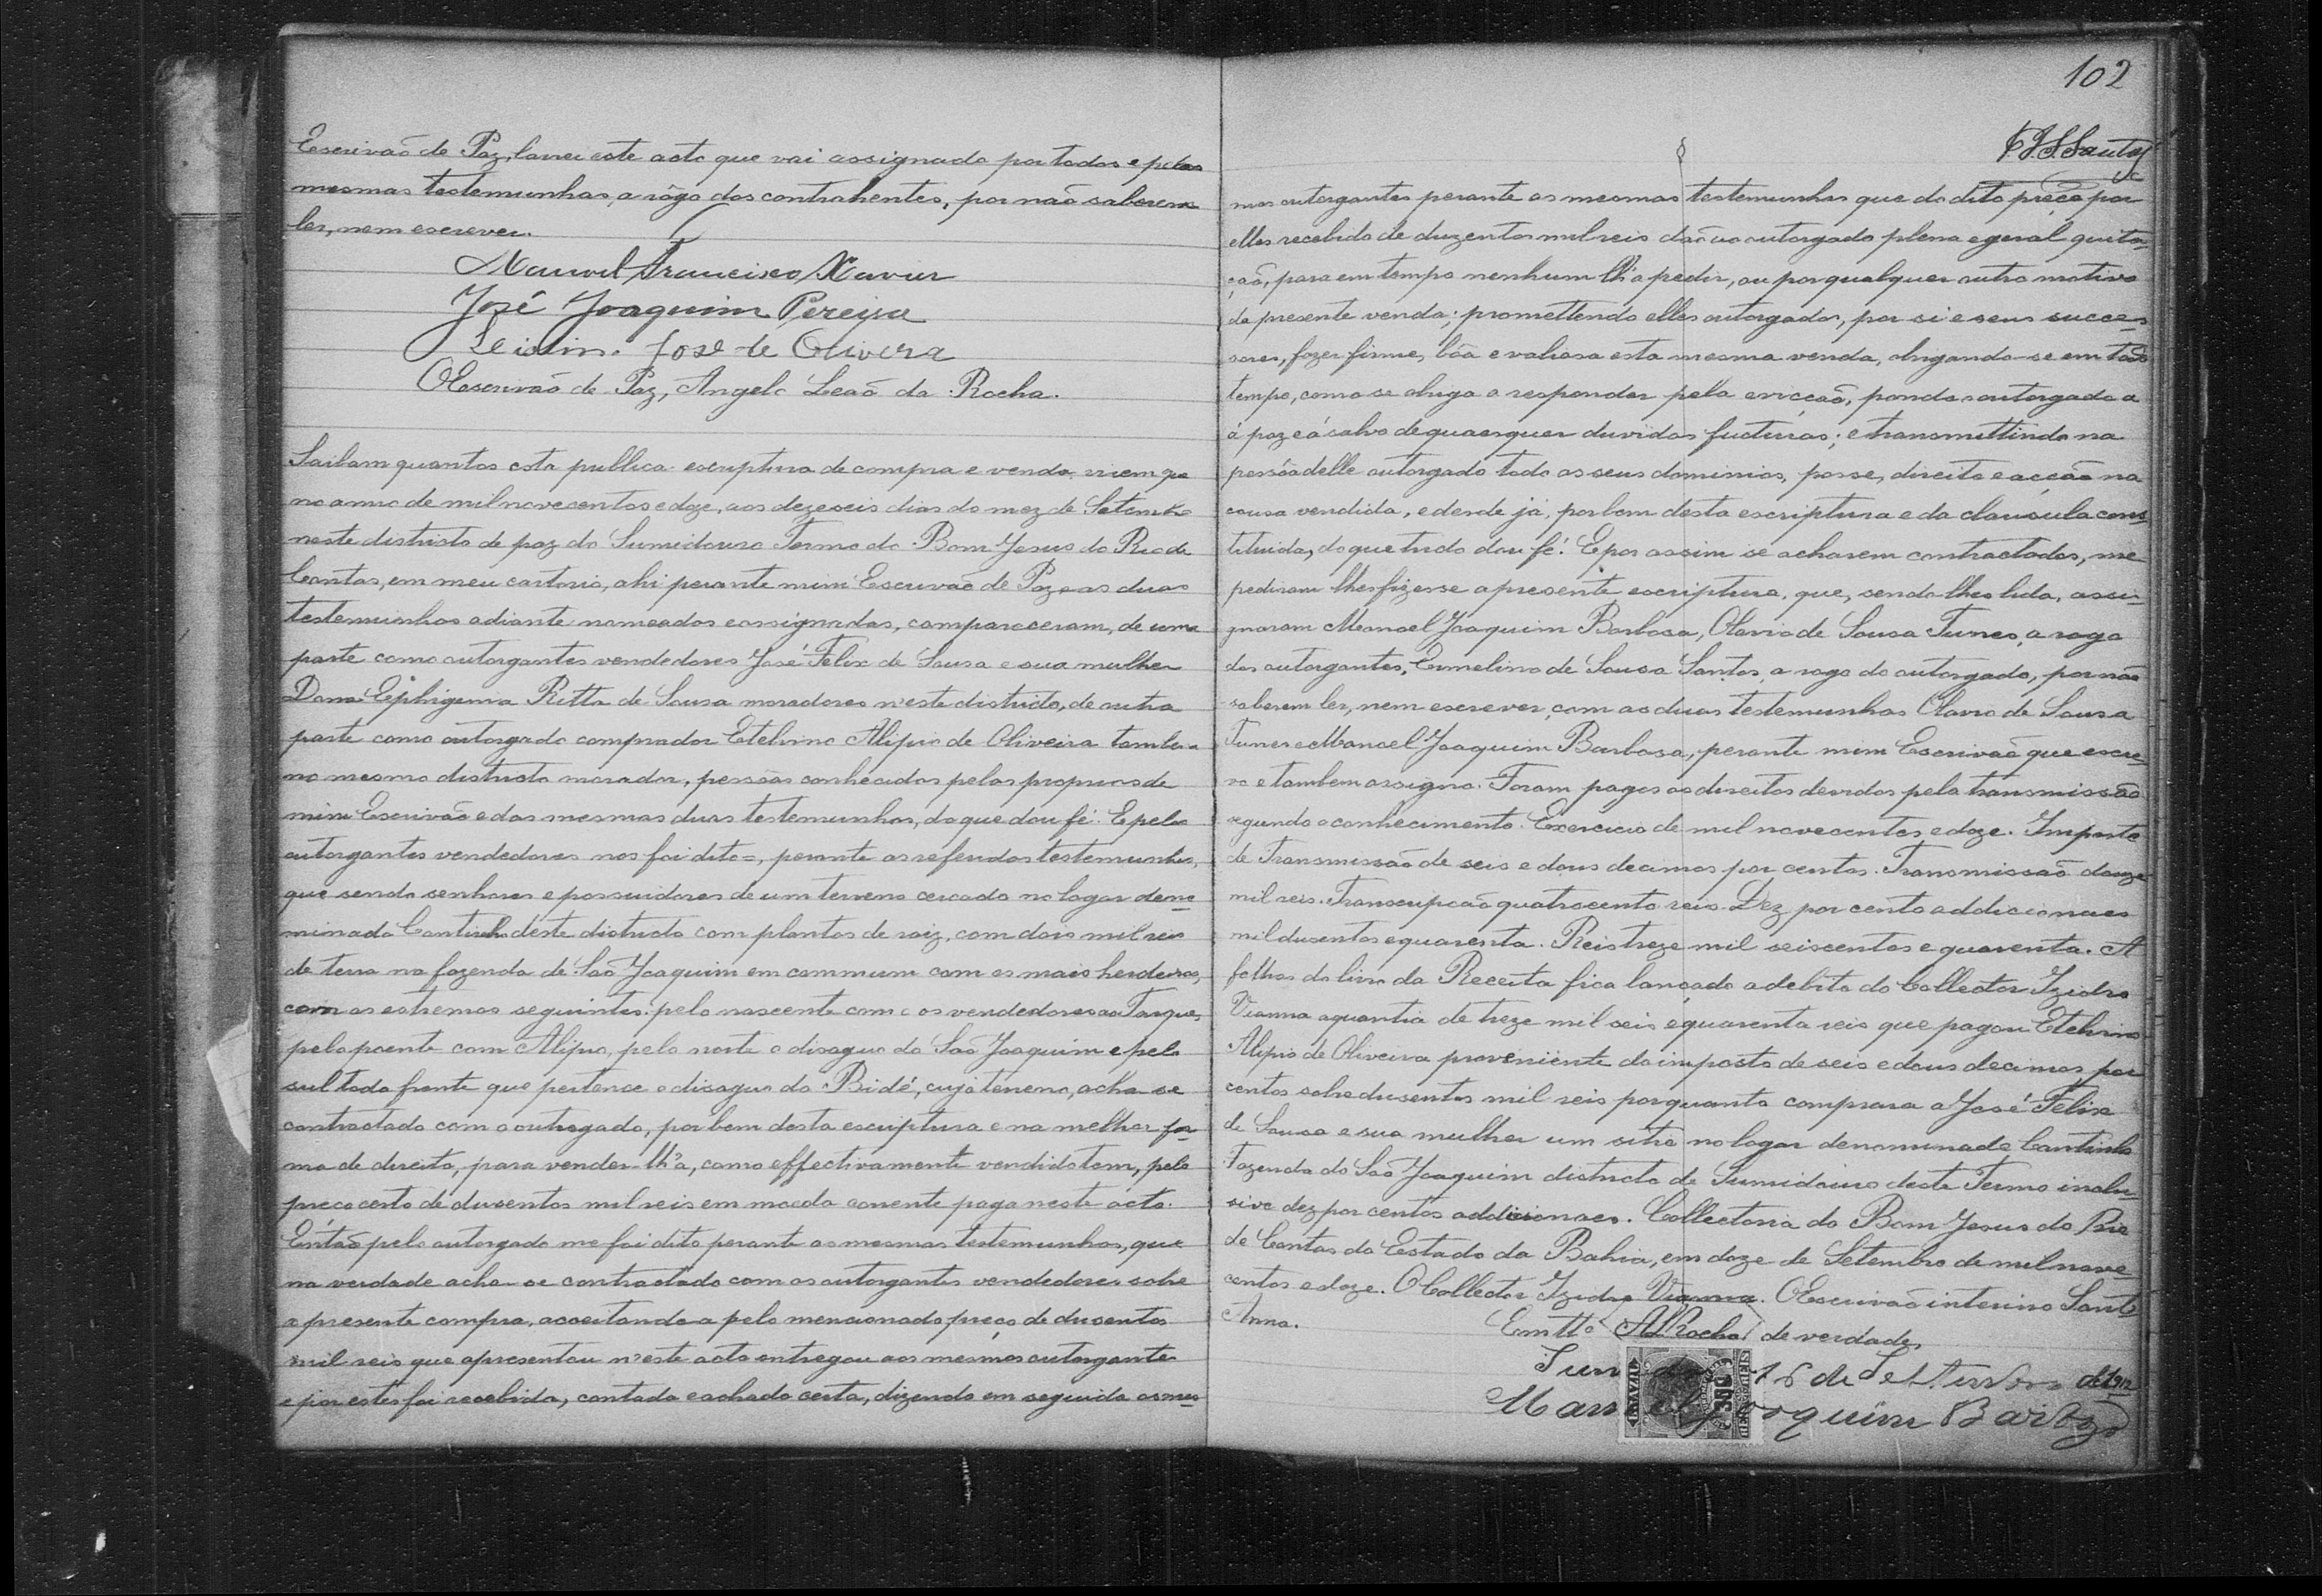 Escrivaõ de Paz, lavrei este acto que vai assignado por todos e pelas
mesmas testemunhas, a rôgo dos contrahentes, por naõ saberem
ler, nem escrever.
Manoel Francisco Xavier
José Joaquim Pereira
José de Olivera
O Escrivaõ de Paz, Angelo Leaõ da Rocha.
Saibam quantos esta publica escriptura de compra e venda virem que
no anno de mil novecentos e doze, aos dezeseis dias do mez de Setembro
neste districto de paz do Sumidouro Termo do Bom Jesus do Rio de
Contas, em meu cartorio, ahi perante mim Escrivaõ de Paz e as duas
testemunhas adiante nomeadas e assignadas, compareceram, de uma
parte como outorgantes vendedores José Felix de Sousa e sua mulher
Dona Ephigenia Ritta de Sousa moradores n'este districto, de outra
parte como outorgado comprador Etelvino Alipio de Oliveira tambem
no mesmo districto morador, pessôas conhecidas pelas proprias de
mim Escrivão e das mesmas duas testemunhas, do que dou fé. E pelos
outorgantes vendedores nos foi dito=, perante as referidas testemunhas,
que sendo senhores e possuidores de um terreno cercado no logar deno-
minado Cantinho deste districto com plantas de raiz, com dois mil reis
de terra na fazenda de Saõ Joaquim em commum com os mais herdeiros,
com os estremos seguintes: pelo nascente com os vendedores ao Tanque,
pelo poente com Alipio, pelo norte o disaguo do Saõ Joaquim e pelo
sul toda frente que pertence o disaguo do Bidé, cujo terreno, acha-se
contractado com o outrogado, por bem desta escriptura e na melhor for-
ma de direito, para vender-lh'a, como effectivamente vendido tem, pelo
preco certo de dusentos mil reis em moeda corrente paga neste acto.
Entaõ pelo outorgado me foi dito perante as mesmas testemunhas, que
na verdade acha-se contractado com os outorgantes vendedores sobre
a presente compra, acceitando-a pelo mencionado preço de dusentos
mil reis que apresentou n'este acto entregou aos mesmos outorgantes
e por estes foi recebida, contada e achada certa, dizendo em seguida os mes-
102
mos outorgantes perante as mesmas testemunhas que do dito preço por
elles recebido de duzentos mil reis daõ ao outorgado plena e geral quita-
çaõ, para em tempo nenhum lh'a pedir, ou por qualquer outro motivo
da presente venda; promettendo elles outorgados, por si e seus succes-
sores, fazer firme, bôa e valiosa esta mesma venda, obrigando-se em todo
tempo, como se obriga a responder pela evicçaõ, pondo o outorgado a
á paz e á salvo de quaesquer duvidas futuras; e transmettindo na
pessôa delle outorgado todo os seus dominios, posse, direito e acção na
cousa vendida, e desde já, por bem desta escriptura e da clausula cons-
tituida, do que tudo dou fé. E por assim se acharem contractados, me
pediram lhes fizesse a presente escriptura, que, sendo-lhes lida, assi-
gnaram Manoel Joaquim Barbosa, Olavio de Sousa Tunes, a rogo
dos outorgantes, Ermelino de Sousa Santos, a rogo do outorgado, por naõ
saberem ler, nem escrever, com as duas testemunhas Olavo de Sousa
Tunes e Manoel Joaquim Barbosa, perante mim Escrivaõ que escre-
vo e tambem assigno. Foram pagos os direitos devidos pela transmissão
segundo o conhecimento. Exercicio de mil novecentos e doze. Imposto
de Transmissaõ de seis e dous decimos por centos. Transmissaõ douze
mil reis. Transcripçaõ quatrocento reis. Dez por cento addicionaes
mil dusentos e quarenta. Reis treze mil seiscentos e quarenta. A
folhas do livro da Receita fica lançado a debito do Collector Izidro
Vianna a quantia de treze mil seis e quarenta reis que pagou Etelvino
Alipio de Oliveira proveniente do imposto de seis e dous decimos por
centos sobre dusentos mil reis por quanto comprara a José Felix
de Sousa e sua mulher um sitio no logar denominado Cantinho
Fazenda do Saõ Joaquim districto de Sumidouro deste Termo inclu-
sive dez por centos addicionaes. Collectoria do Bom Jesus do Rio
de Contas do Estado da Bahia, em doze de Setembro de mil nove-
centos e doze. O Collector Izidro Vianna. O Escrivaõ interino Sant'
Anna.
Em ttº ALRocha de verdade
16 de Settembro de 1912
300
Manoel Joaquim Barboza